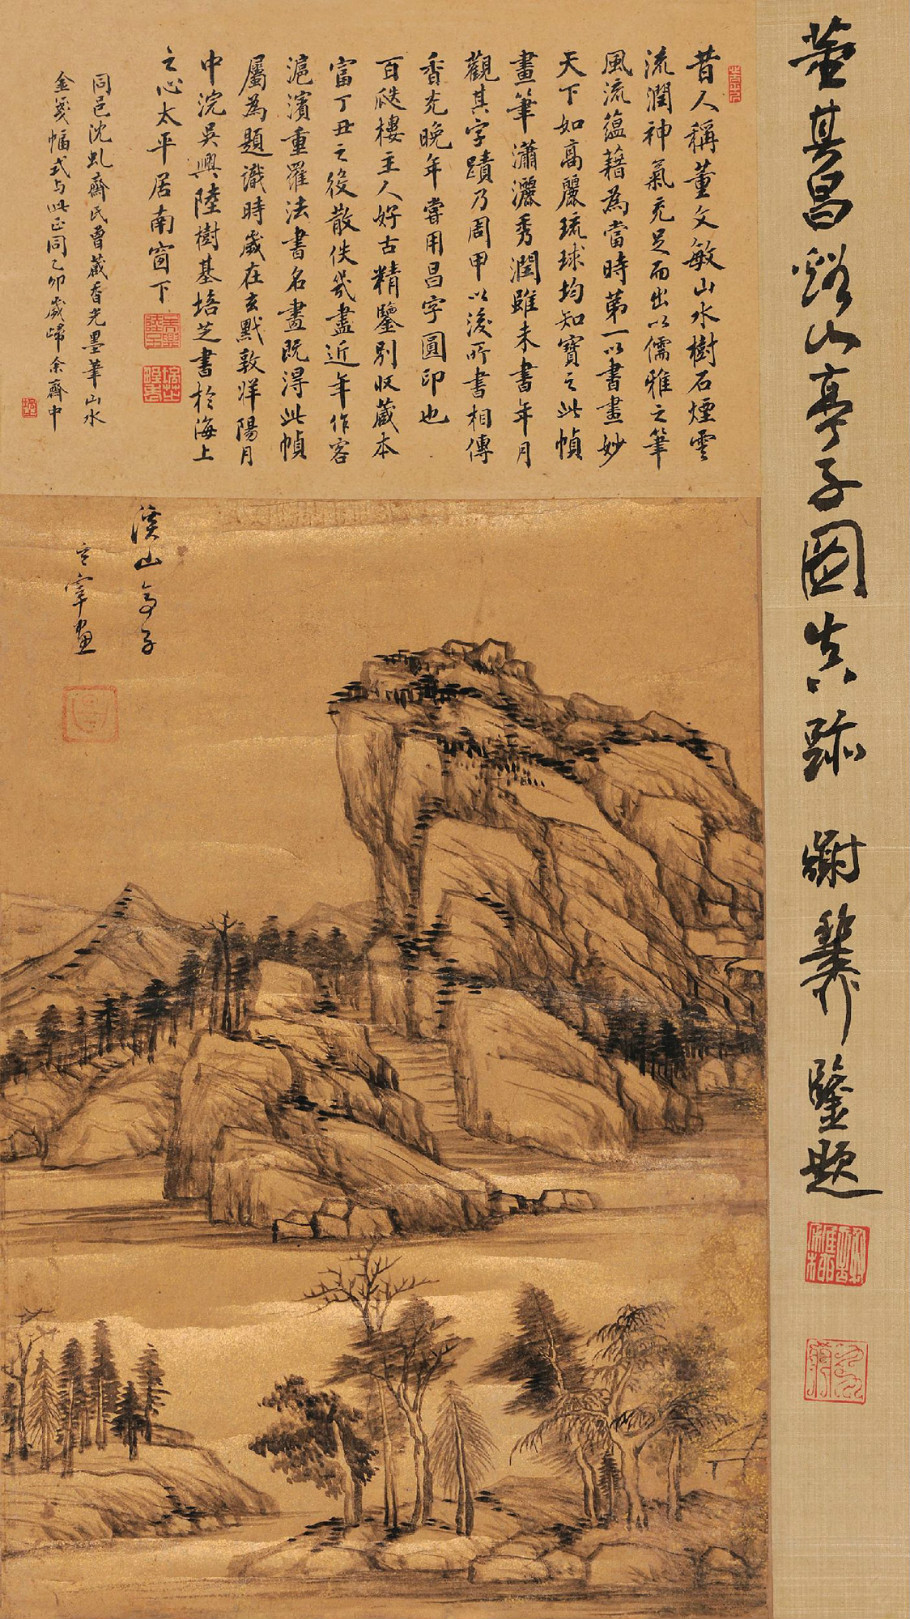 董其昌谿山亭子圖真跡 謝稚柳鑒題
昔人稱董文敏山水樹石煙雲
流潤神氣充足而出以儒雅之筆
風流蘊藉為當時第一以書畫妙
天下如高麗琉球均知寶之此幀
畫筆瀟灑秀潤雖未書年月
觀其字蹟乃周甲以後所書相傳
香光晚年嘗用昌字圓印也
百爵樓主人好古精鑒別收藏本
富丁丑之役散佚幾盡近年作客
滬濱重羅法書名畫既得此幀
屬為題識時歲在玄黓敦牂陽月
中浣吳興陸樹基培芝書於海上
之心太平居南窗下
同邑沈虬齋民曹藏香光墨筆山水
金箋幅式與此正同乙卯歲歸余齋中
溪山亭子
玄宰畫